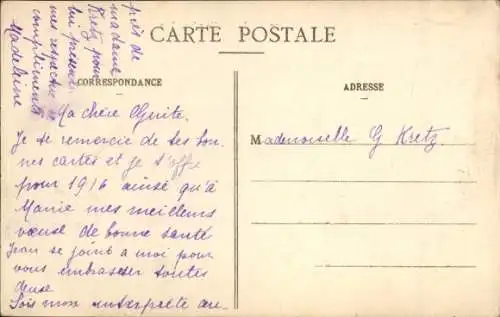 CARTE POSTALE
CORRESPONDANCE
ADRESSE
Ma chère Guite.
Je te remercie de tes bon
nes cartes et je t'offre
pour 1916 ainsi qu'à
Marie mes meilleurs
vœux de bonne santé
Jean se joint a moi pour
vous embrasser toutes
deux
Sois mon interprette au-
près de
madame
Kretz pour
lui présenter
mes respectueux
compliments
Madeleine
Mademoiselle G Kretz.